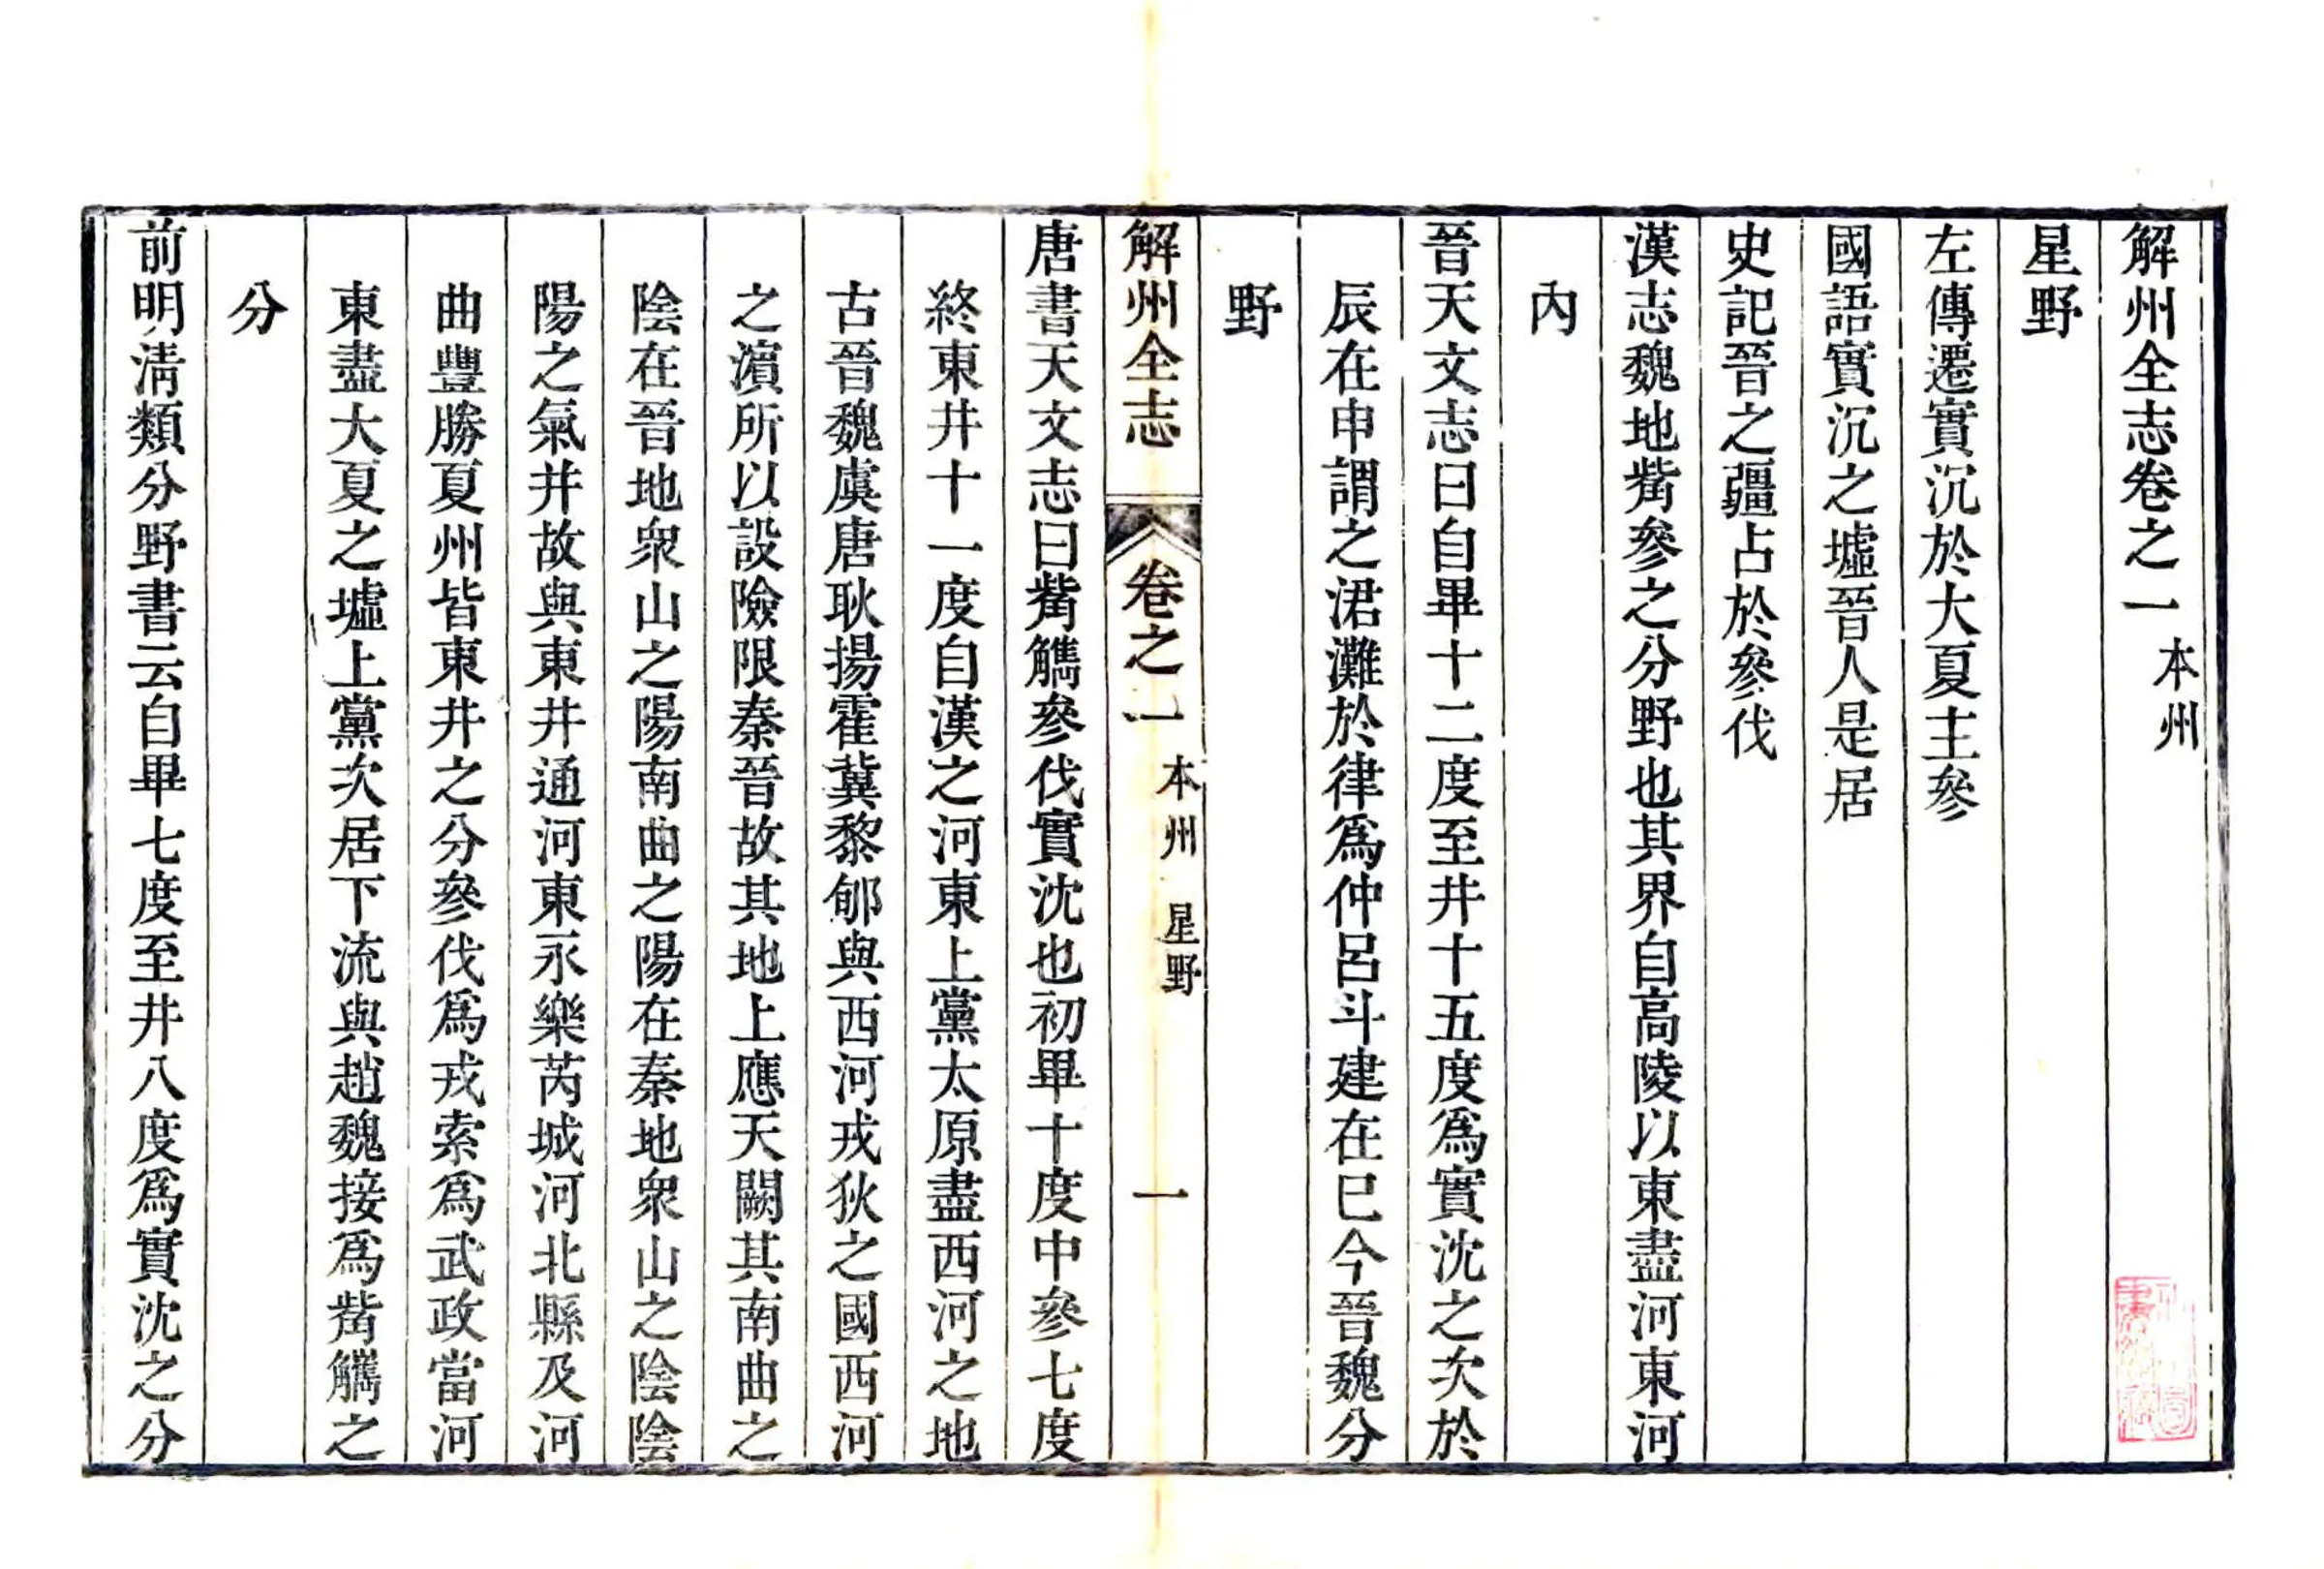 解州全志卷之一 本州
星野
左傳遷實沉於大夏主參
國語實沉之墟晉人是居
史記晉之疆占於參伐
漢志魏地觜參之分野也其界自高陵以東盡河東河
內
晉天文志曰自畢十二度至井十五度爲實沈之次於
辰在申謂之涒灘於律爲仲呂斗建在巳今晉魏分
野
解州全志 卷之一 本州 星野 一
唐書天文志曰觜觿參伐實沈也初畢十度中參七度
終東井十一度自漢之河東上黨太原盡西河之地
古晉魏虞唐耿揚霍冀黎郇與西河戎狄之國西河
之濱所以設險限秦晉故其地上應天闕其南曲之
陰在晉地衆山之陽南曲之陽在秦地衆山之陰陰
陽之氣并故與東井通河東永樂芮城河北縣及河
曲豐勝夏州皆東井之分參伐爲戎索爲武政當河
東盡大夏之墟上黨次居下流與趙魏接爲觜觿之
分
前明淸類分野書云自畢七度至井八度爲實沈之分